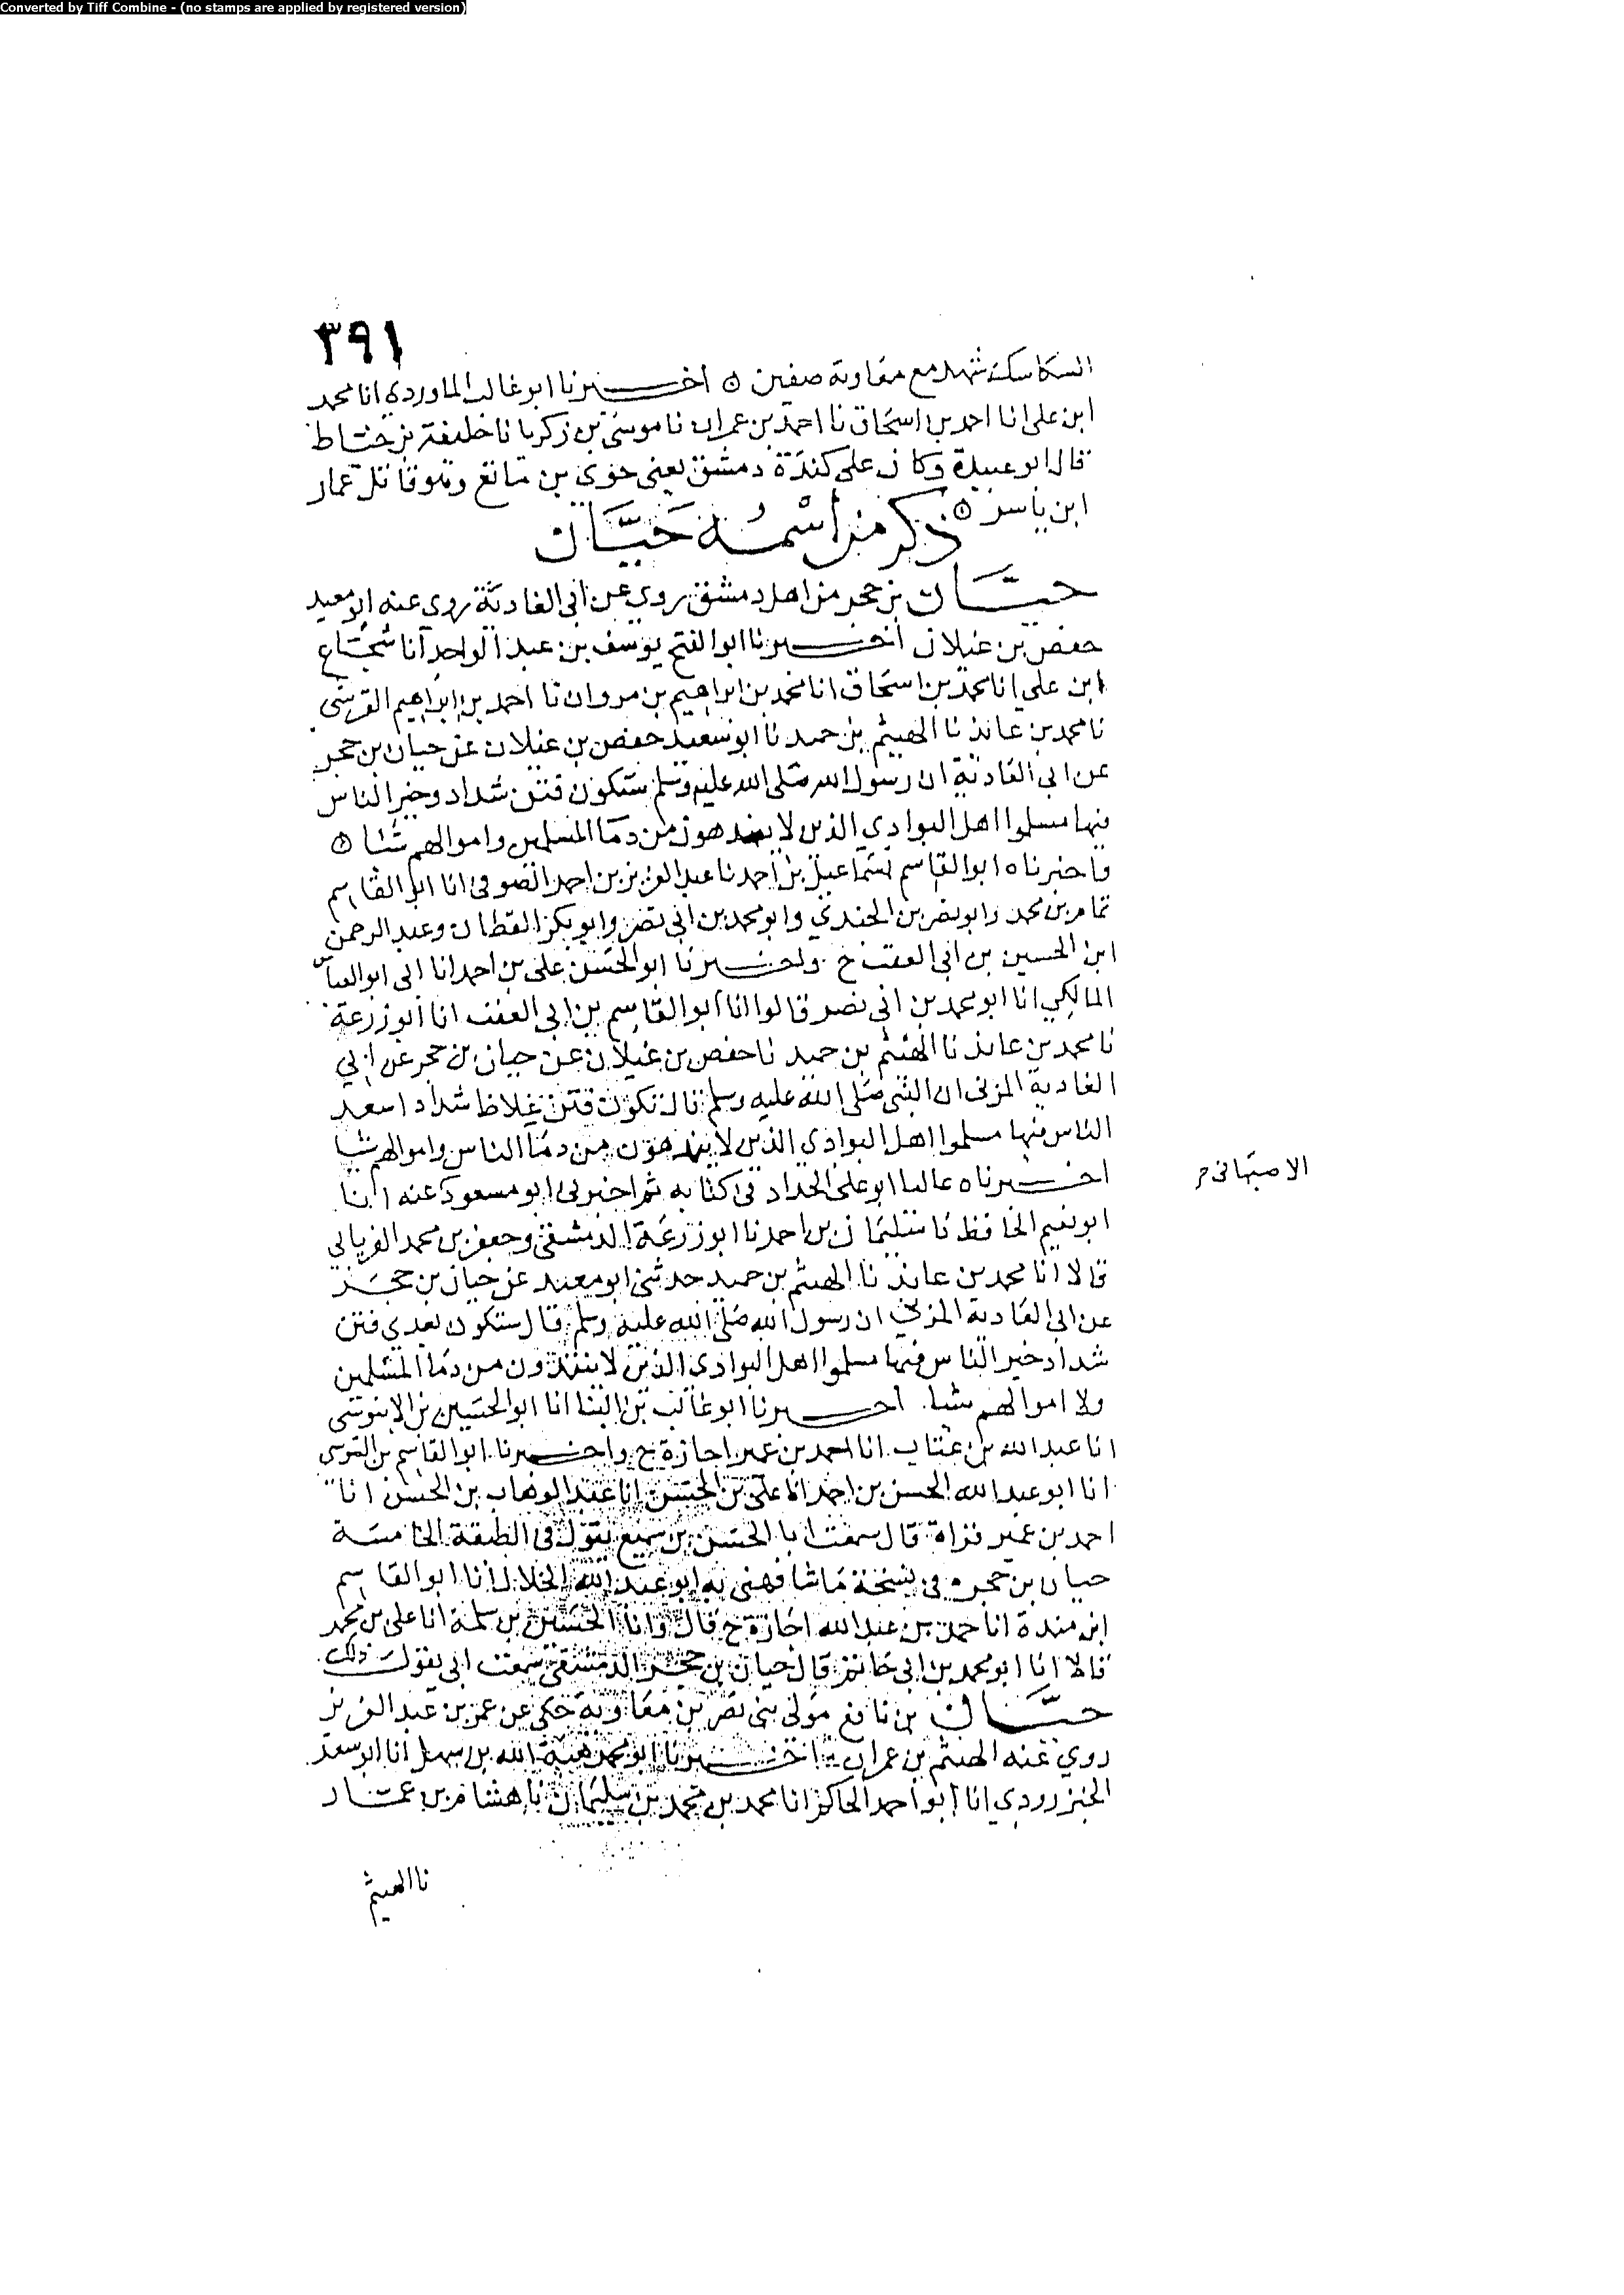 Converted by Tiff Combine - (no stamps are applied by registered version)
٣٩١
السكاسك شهد مع معاوية صفين اخبرنا ابو غالب الماوردي انا محمد
ابن علي انا احمد بن اسحاق نا احمد بن عمران نا موسى بن زكريا نا خليفة بن خياط
قال ابو عبيدة وكان على كندة دمشق يعني حوى بن ماتع وهو قاتل عمار
ابن ياسر
ذكر من اسمه حيان
حيان بن حجر من اهل دمشق روى عن ابي الغادية روى عنه ابو معيد
حفص بن غيلان اخبرنا ابو الفتح يوسف بن عبد الواحد انا شجاع
ابن علي انا محمد بن اسحاق انا محمد بن ابراهيم بن مروان نا احمد بن ابراهيم القرشي
نا محمد بن عائذ نا الهيثم بن حميد نا ابو سعيد حفص بن غيلان عن حيان بن حجر
عن ابي الغادية ان رسول الله صلى الله عليه وسلم ستكون فتن شداد وخير الناس
فيها مسلموا اهل البوادي الذين لا يندهون من دما المسلمين واموالهم شيئا
واخبرناه ابو القاسم اسماعيل بن احمد نا عبد العزيز بن احمد الصوفي انا ابو القاسم
تمام بن محمد وابو نصر بن الجندي وابو محمد بن ابي نصر وابو بكر القطان وعبد الرحمن
ابن الحسين بن ابي العقب ح واخبرنا ابو الحسن علي بن احمد انا ابي ابو العباس
المالكي انا ابو محمد بن ابي نصر قالوا انا ابو القاسم بن ابي العقب انا ابو زرعة
نا محمد بن عائذ نا الهيثم بن حميد نا حفص بن غيلان عن حيان بن حجر عن ابي
الغادية المزني ان النبي صلى الله عليه وسلم قال تكون فتن غلاظ شداد اسعد
الناس فيها مسلموا اهل البوادي الذين لا يندهون من دما الناس واموالهم شيا
اخبرناه عاليا ابو علي الحداد في كتابه ثم اخبرني ابو مسعود عنه انا
الاصبهاني
ابو نعيم الحافظ نا سليمان بن احمد نا ابو زرعة الدمشقي وجعفر بن محمد الفريابي
قالا انا محمد بن عائذ نا الهيثم بن حميد حدثني ابو معيد عن حيان بن حجر
عن ابي الغادية المزني ان رسول الله صلى الله عليه وسلم قال ستكون بعدي فتن
شداد خير الناس فيها مسلموا اهل البوادي الذين لا يتندون من دما المسلمين
ولا اموالهم شيا اخبرنا ابو غالب بن البنا انا ابو الحسين بن الابنوسي
انا عبد الله بن عتاب انا احمد بن عمير اجازة ح واخبرنا ابو القاسم بن السوسي
انا ابو عبد الله الحسن بن احمد انا علي بن الحسن انا عبد الوهاب بن الحسن انا
احمد بن عمير قراة قال سمعت ابا الحسن بن سميع يقول في الطبقة الخامسة
حيان بن حجر في نسخة ما شافهني به ابو عبد الله الخلال انا ابو القاسم
ابن مندة انا حمد بن عبد الله اجازة ح قال وانا الحسين بن سلمة انا علي بن محمد
قالا انا ابو محمد بن ابي حاتم قال حيان بن حجر الدمشقي سمعت ابي يقول ذلك
حيان بن نافع مولى بني نصر بن معاوية حكى عن عمر بن عبد العزيز
روى عنه الهيثم بن عمران اخبرنا ابو محمد هبة الله بن سهل انا ابو سعد
الجنزرودي انا ابو احمد الحاكم انا محمد بن محمد بن سليمان نا هشام بن عمار
نا الهيثم